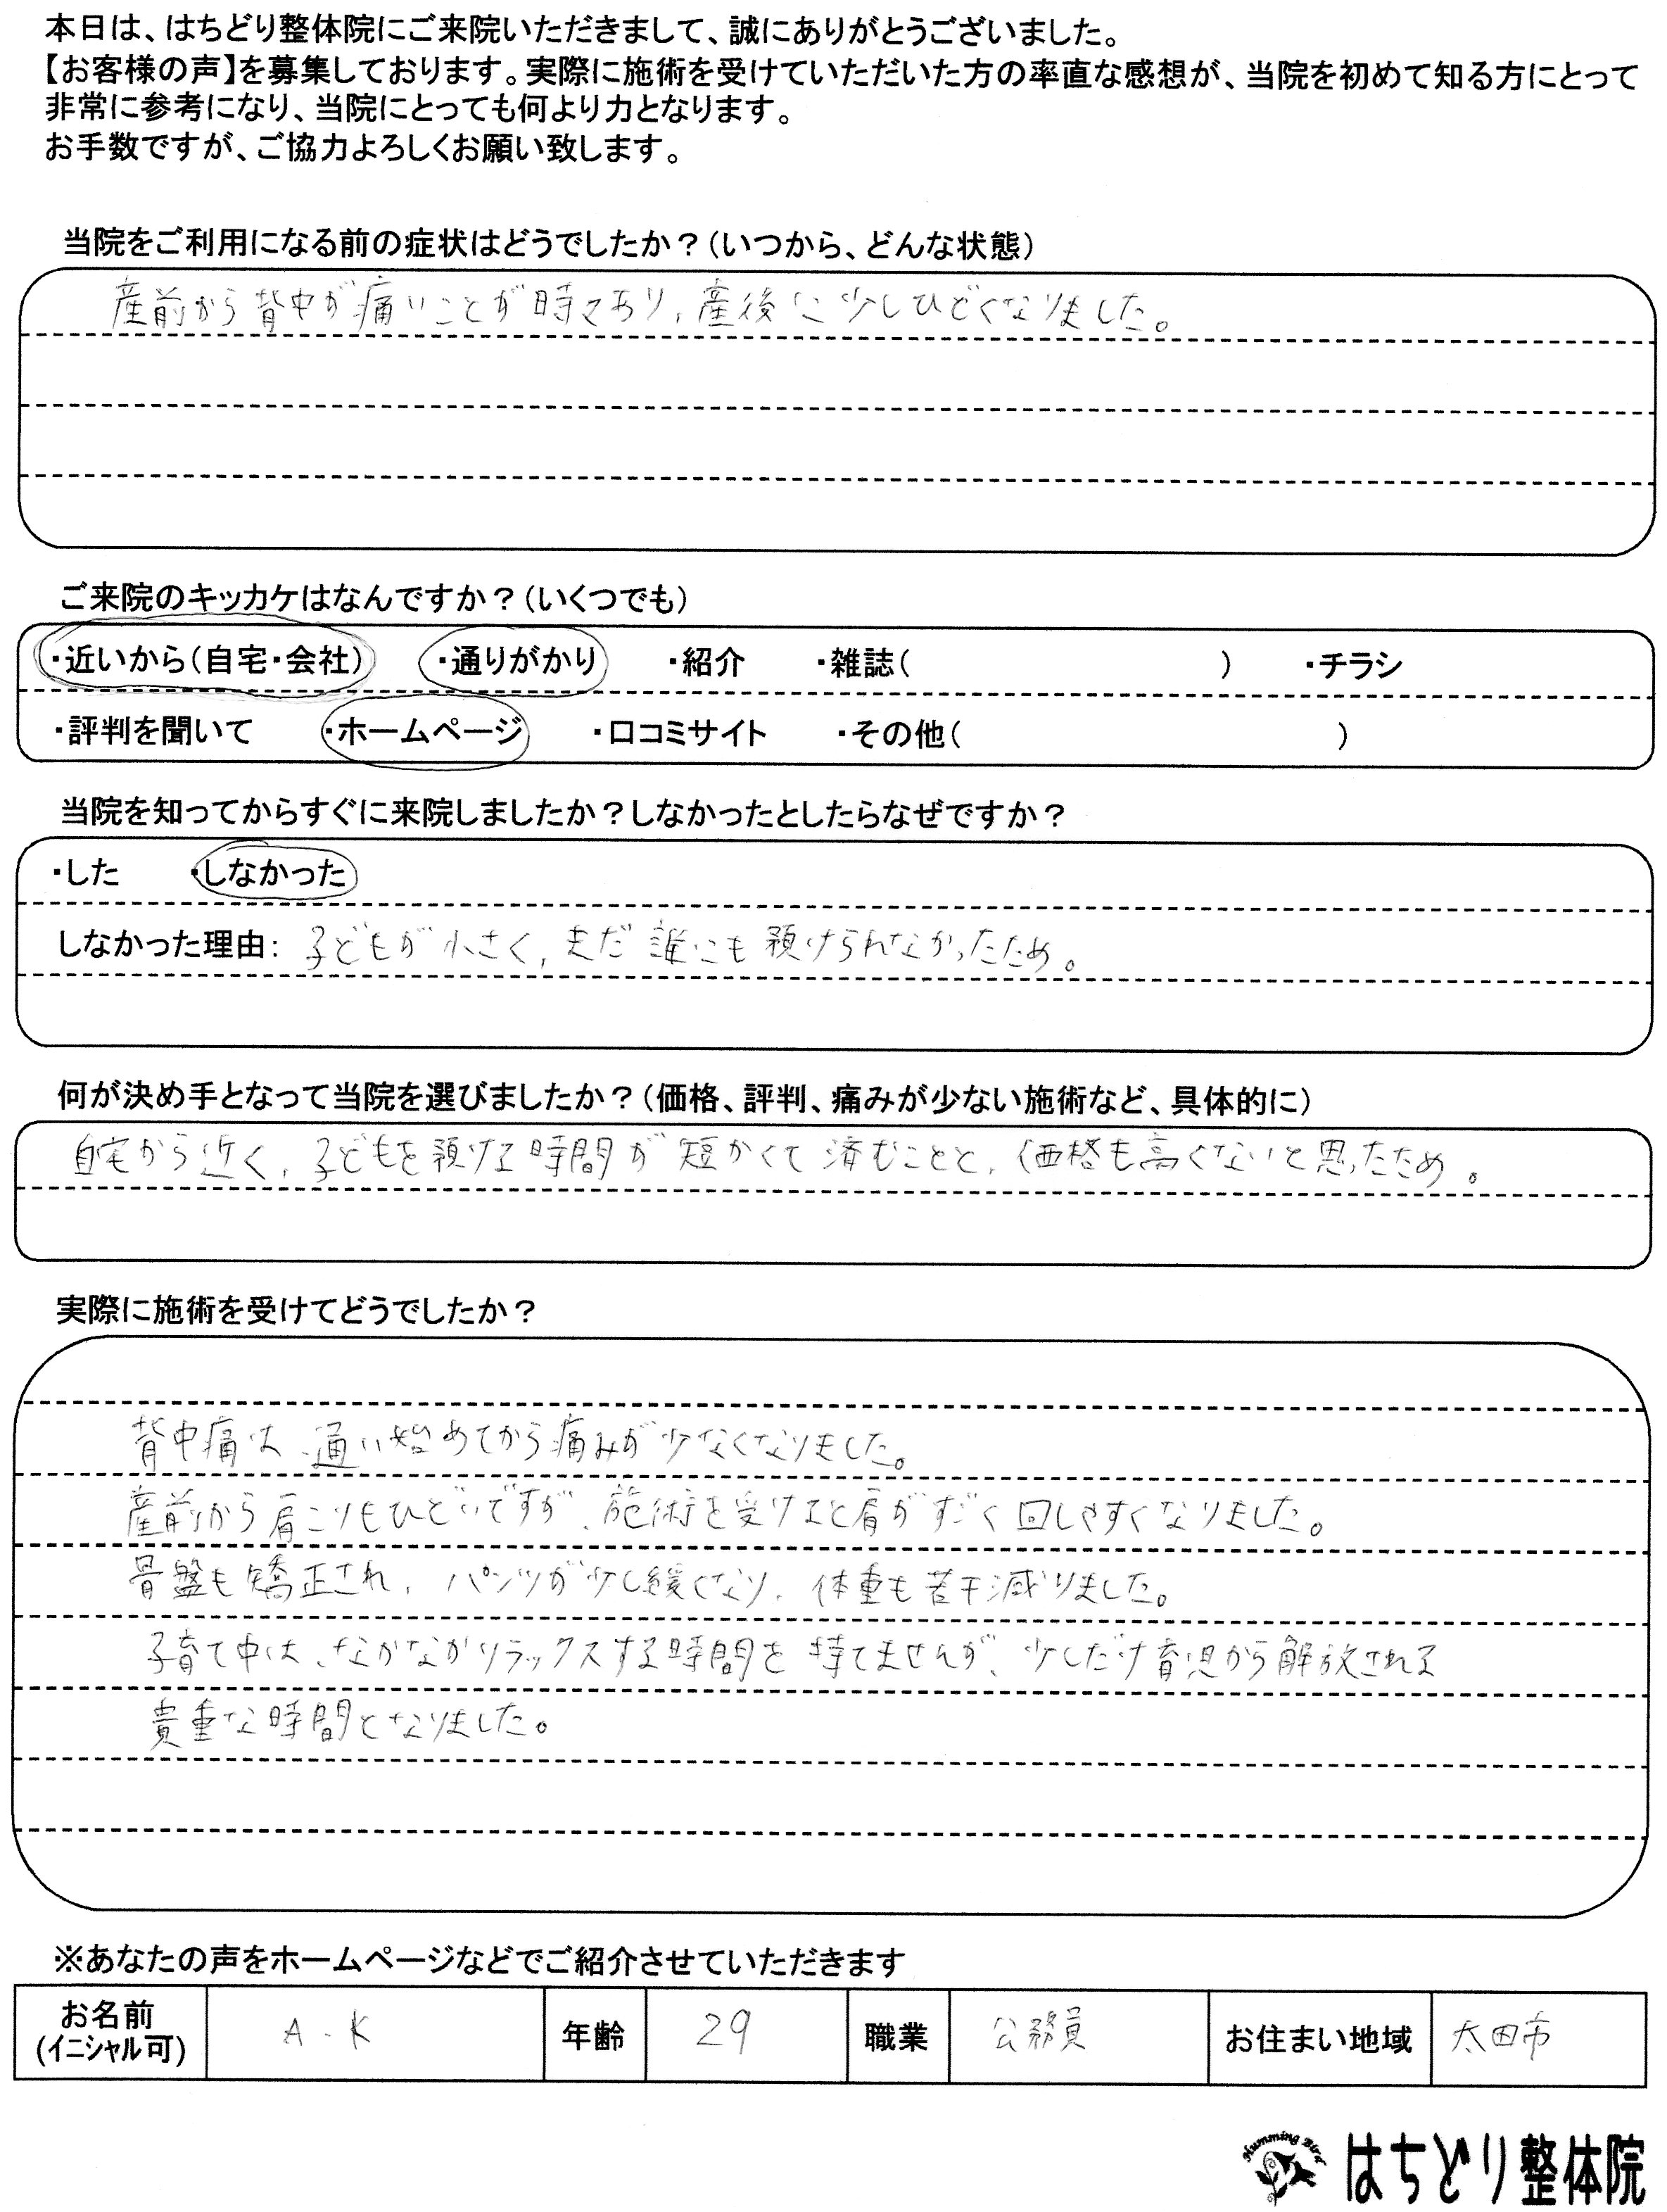 本日は、はちどり整体院にご来院いただきまして、誠にありがとうございました。
【お客様の声】を募集しております。実際に施術を受けていただいた方の率直な感想が、当院を初めて知る方にとって
非常に参考になり、当院にとっても何より力となります。
お手数ですが、ご協力よろしくお願い致します。
当院をご利用になる前の症状はどうでしたか？（いつから、どんな状態）
産前から背中が痛いことが時々あり、産後に少しひどくなりました。
ご来院のキッカケはなんですか？（いくつでも）
・近いから（自宅・会社） ・通りがかり ・紹介 ・雑誌（ ） ・チラシ
・評判を聞いて ・ホームページ ・口コミサイト ・その他（ ）
当院を知ってからすぐに来院しましたか？しなかったとしたらなぜですか？
・した ・しなかった
しなかった理由： 子どもが小さく、まだ誰にも預けられなかったため。
何が決め手となって当院を選びましたか？（価格、評判、痛みが少ない施術など、具体的に）
自宅から近く、子どもを預ける時間が短かくて済むことと、価格も高くないと思ったため。
実際に施術を受けてどうでしたか？
背中痛は、通い始めてから痛みが少なくなりました。
産前から肩こりもひどいですが、施術を受けると肩がすごく回しやすくなりました。
骨盤も矯正され、パンツが少し緩くなり、体重も若干減りました。
子育て中は、なかなかリラックスする時間を持てませんが、少しだけ育児から解放される
貴重な時間となりました。
※あなたの声をホームページなどでご紹介させていただきます
お名前 (イニシャル可) A．K 年齢 29 職業 公務員 お住まい地域 太田市
Humming Bird はちどり整体院